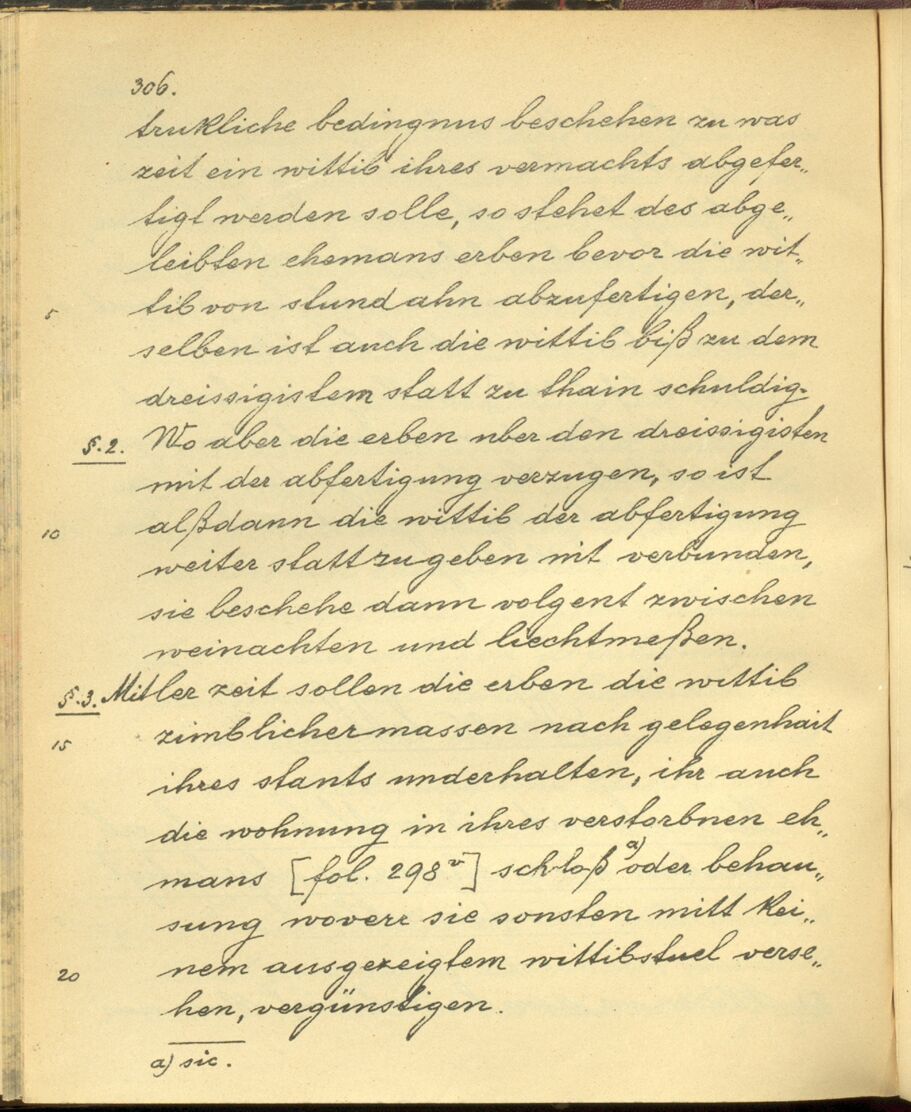 306.
trukliche bedingnus beschehen zu was
zeit ein wittib ihres vermachts abgefer„
tigt werden solle, so stehet des abge„
leibten ehemans erben bevor die wit„
5 tib von stund ahn abzufertigen, der„
selben ist auch die wittib biß zu dem
dreissigistem statt zu thain schuldig.
§.2. Wo aber die erben uber den dreissigisten
mit der abfertigung verzugen, so ist
10 alßdann die wittib der abfertigung
weiter statt zu geben nit verbunden,
sie beschehe dann volgent zwischen
weinachten und liechtmeßen.
§.3. Mitler zeit sollen die erben die wittib
15 zimblicher massen nach gelegenhait
ihres stants underhalten, ihr auch
die wohnung in ihres verstorbnen eh„
mans [fol. 298v] schloß a) oder behau„
sung woverr sie sonsten mitt kei„
20 nem ausgezeigtem wittibstuel verse„
hen, vergünstigen.
a) sic.